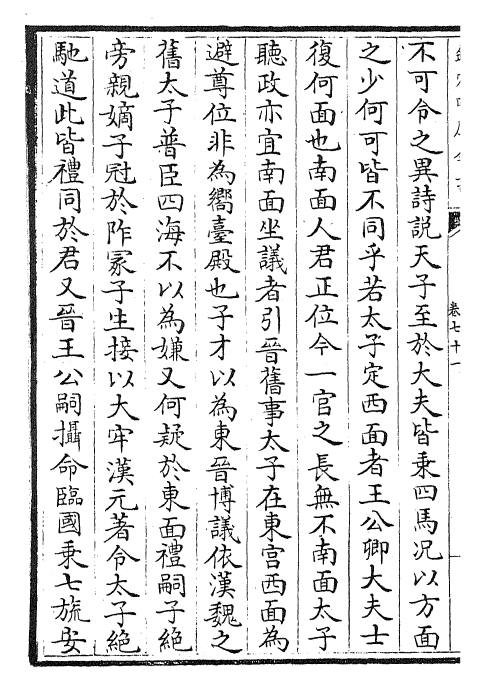 卷七十一
不可令之異詩説天子至於大夫皆乘四馬况以方面
之少何可皆不同乎若太子定西面者王公卿大夫士
復何面也南面人君正位今一官之長無不南面太子
聽政亦宜南面坐議者引晉舊事太子在東宫西面為
避尊位非為嚮臺殿也子才以為東晉博議依漢魏之
舊太子普臣四海不以為嫌又何疑於東面禮嗣子絶
旁親嫡子冠於阼冢子生接以大牢漢元著令太子絶
馳道此皆禮同於君又晉王公嗣攝命臨國乘七旒安